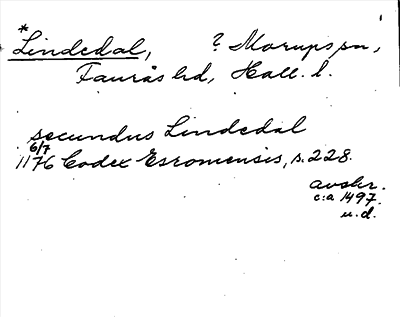 *Lindedal, ? Morups sn,
Faurås hd, Hall. l.
secundus Lindedal
6/7
1176 Codex Esromensis, s. 228.
avskr.
c:a 1497.
u.d.